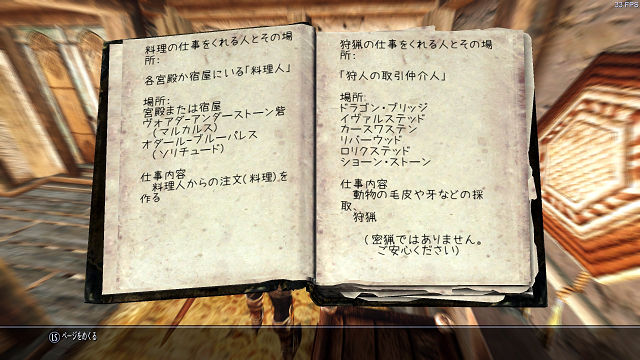 33 FPS
料理の仕事をくれる人とその場
所:
各宮殿か宿屋にいる「料理人」
場所:
宮殿または宿屋
ヴォアダ-アンダーストーン砦
(マルカルス)
オダール-ブルーパレス
(ソリチュード)
仕事内容
料理人からの注文(料理)を
作る
狩猟の仕事をくれる人とその場
所:
「狩人の取引仲介人」
場所:
ドラゴン・ブリッジ
イヴァルステッド
カースワステン
リバーウッド
ロリクステッド
ショーン・ストーン
仕事内容
動物の毛皮や牙などの採
取、
狩猟
(密猟ではありません。
ご安心ください)
LS ページをめくる